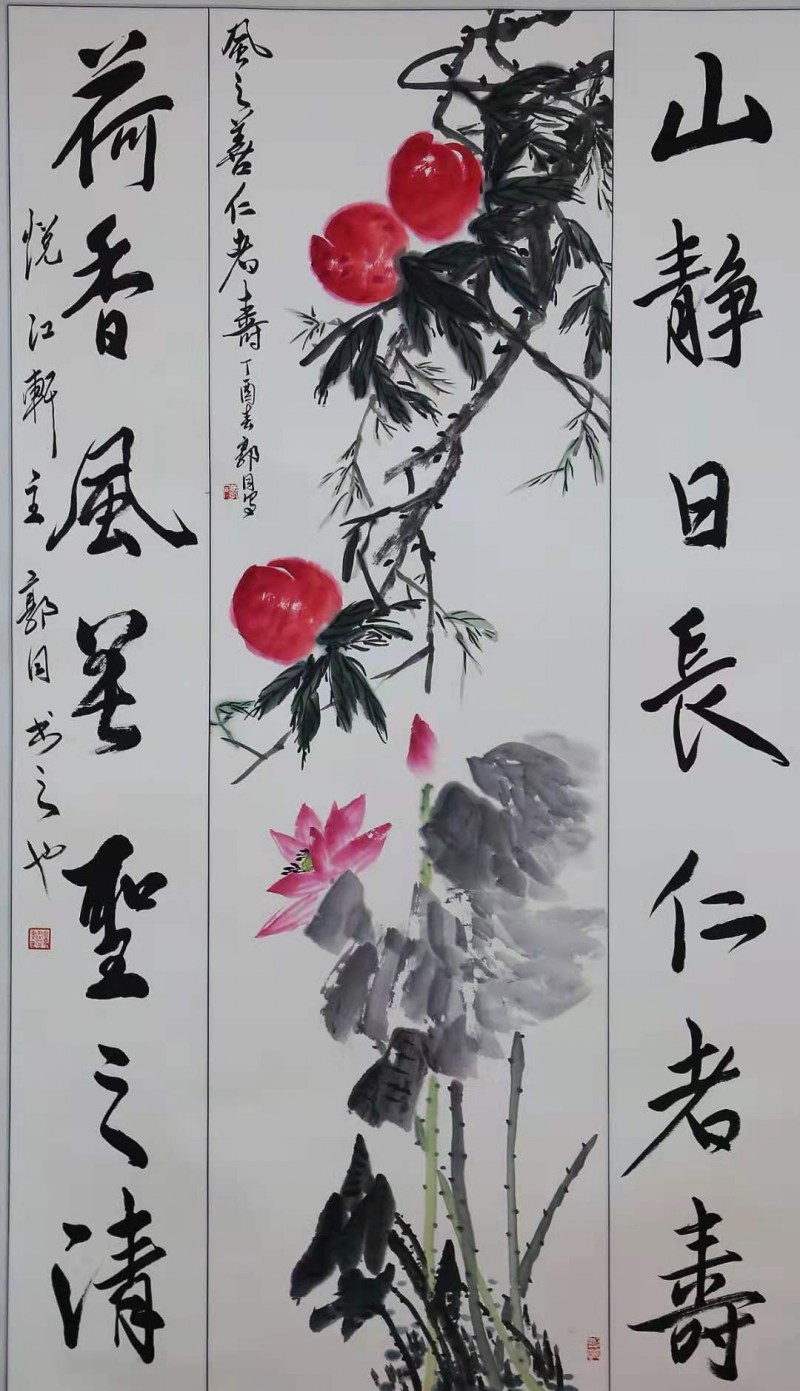 山静日長仁者壽
風之善仁者壽
丁酉春郭同写
荷香風善聖之清
悦江軒主郭同书之也